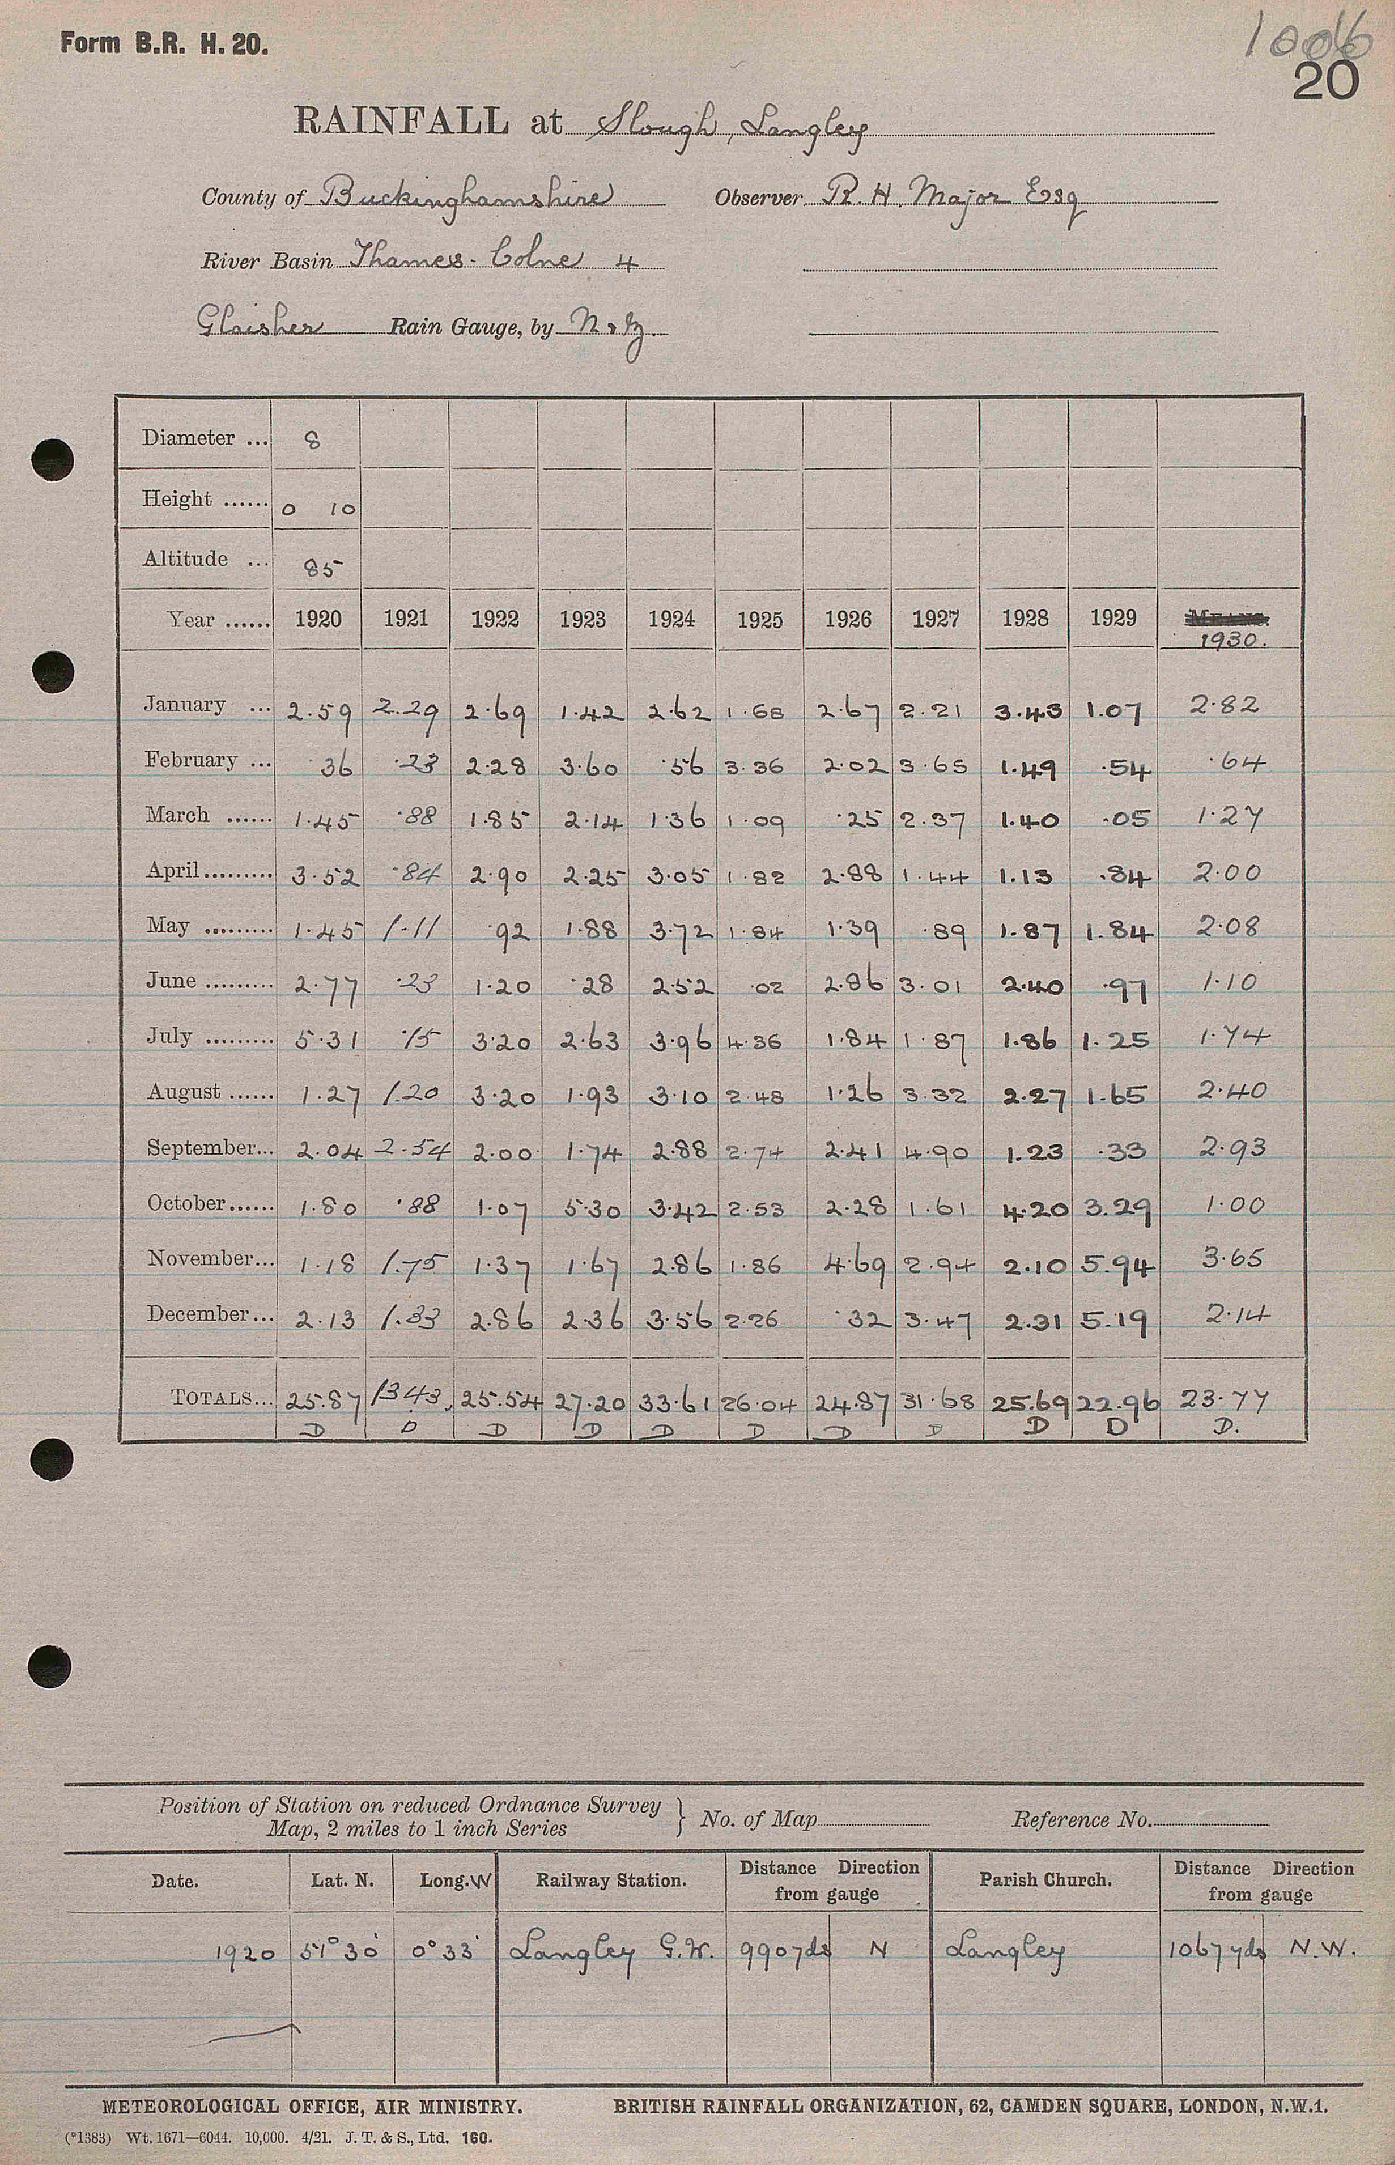 Form B.R. H. 20.
1006
20
RAINFALL at Slough, Langley
County of Buckinghamshire Observer R. H. Major Esq
River Basin Thames - Colne 4
Glaisher Rain Gauge, by N & Z
Diameter ... 8
Height ...... 0 10
Altitude ... 85
Year ...... 1920 1921 1922 1923 1924 1925 1926 1927 1928 1929 1930.
January ... 2.59 2.29 2.69 1.42 2.62 1.68 2.67 2.21 3.43 1.07 2.82
February ... .36 .23 2.28 3.60 .56 3.36 2.02 3.65 1.49 .54 .64
March ...... 1.45 .88 1.85 2.14 1.36 1.09 .25 2.37 1.40 .05 1.27
April ......... 3.52 .84 2.90 2.25 3.05 1.82 2.88 1.44 1.13 .84 2.00
May ......... 1.45 1.11 .92 1.88 3.72 1.84 1.39 .89 1.87 1.84 2.08
June ......... 2.77 .23 1.20 .28 2.52 .02 2.86 3.01 2.40 .97 1.10
July ......... 5.31 .15 3.20 2.63 3.96 4.36 1.84 1.87 1.86 1.25 1.74
August ...... 1.27 1.20 3.20 1.93 3.10 2.48 1.26 3.32 2.27 1.65 2.40
September... 2.04 2.54 2.00 1.74 2.88 2.74 2.41 4.90 1.23 .33 2.93
October...... 1.80 .88 1.07 5.30 3.42 2.53 2.28 1.61 4.20 3.29 1.00
November... 1.18 1.75 1.37 1.67 2.86 1.86 4.69 2.94 2.10 5.94 3.65
December... 2.13 1.33 2.86 2.36 3.56 2.26 .32 3.47 2.31 5.19 2.14
TOTALS... 25.87 13.43 25.54 27.20 33.61 26.04 24.87 31.68 25.69 22.96 23.77
D D D D D D D D D D D.
Position of Station on reduced Ordnance Survey
Map, 2 miles to 1 inch Series } No. of Map Reference No.
Date. Lat. N. Long. W Railway Station. Distance Direction from gauge Parish Church. Distance Direction from gauge
1920 51° 30' 0° 33' Langley G.W. 990 yds N Langley 1067 yds N.W.
METEOROLOGICAL OFFICE, AIR MINISTRY. BRITISH RAINFALL ORGANIZATION, 62, CAMDEN SQUARE, LONDON, N.W.1.
(*1383) Wt. 1671—6044. 10,000. 4/21. J. T. & S., Ltd. 160.